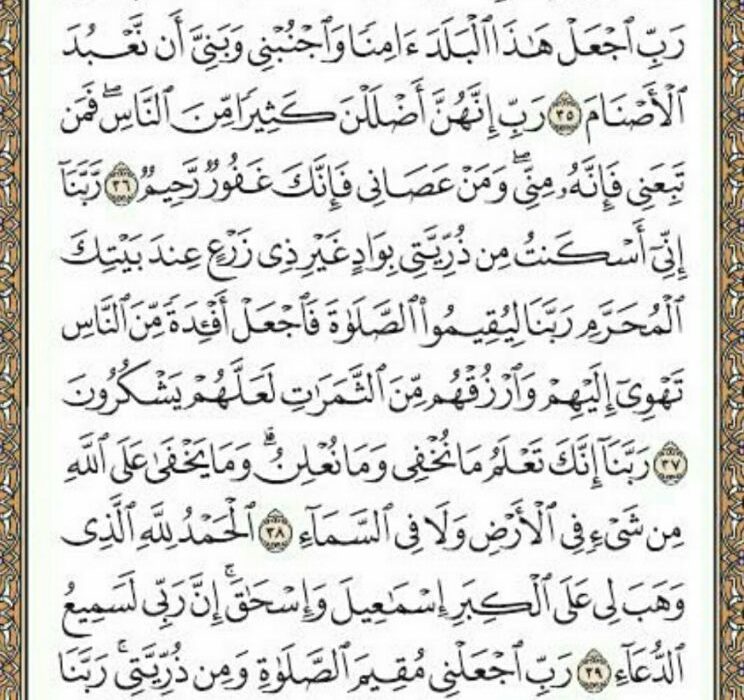 رَبِّ ٱجۡعَلۡ هَٰذَا ٱلۡبَلَدَ ءَامِنٗا وَٱجۡنُبۡنِي وَبَنِيَّ أَن نَّعۡبُدَ
ٱلۡأَصۡنَامَ ٣٥ رَبِّ إِنَّهُنَّ أَضۡلَلۡنَ كَثِيرٗا مِّنَ ٱلنَّاسِۖ فَمَن
تَبِعَنِي فَإِنَّهُۥ مِنِّيۖ وَمَنۡ عَصَانِي فَإِنَّكَ غَفُورٞ رَّحِيمٞ ٣٦ رَّبَّنَآ
إِنِّيٓ أَسۡكَنتُ مِن ذُرِّيَّتِي بِوَادٍ غَيۡرِ ذِي زَرۡعٍ عِندَ بَيۡتِكَ
ٱلۡمُحَرَّمِ رَبَّنَا لِيُقِيمُواْ ٱلصَّلَوٰةَ فَٱجۡعَلۡ أَفۡـِٔدَةٗ مِّنَ ٱلنَّاسِ
تَهۡوِيٓ إِلَيۡهِمۡ وَٱرۡزُقۡهُم مِّنَ ٱلثَّمَرَٰتِ لَعَلَّهُمۡ يَشۡكُرُونَ
٣٧ رَبَّنَآ إِنَّكَ تَعۡلَمُ مَا نُخۡفِي وَمَا نُعۡلِنُۗ وَمَا يَخۡفَىٰ عَلَى ٱللَّهِ
مِن شَيۡءٖ فِي ٱلۡأَرۡضِ وَلَا فِي ٱلسَّمَآءِ ٣٨ ٱلۡحَمۡدُ لِلَّهِ ٱلَّذِي
وَهَبَ لِي عَلَى ٱلۡكِبَرِ إِسۡمَٰعِيلَ وَإِسۡحَٰقَۚ إِنَّ رَبِّي لَسَمِيعُ
ٱلدُّعَآءِ ٣٩ رَبِّ ٱجۡعَلۡنِي مُقِيمَ ٱلصَّلَوٰةِ وَمِن ذُرِّيَّتِيۚ رَبَّنَا